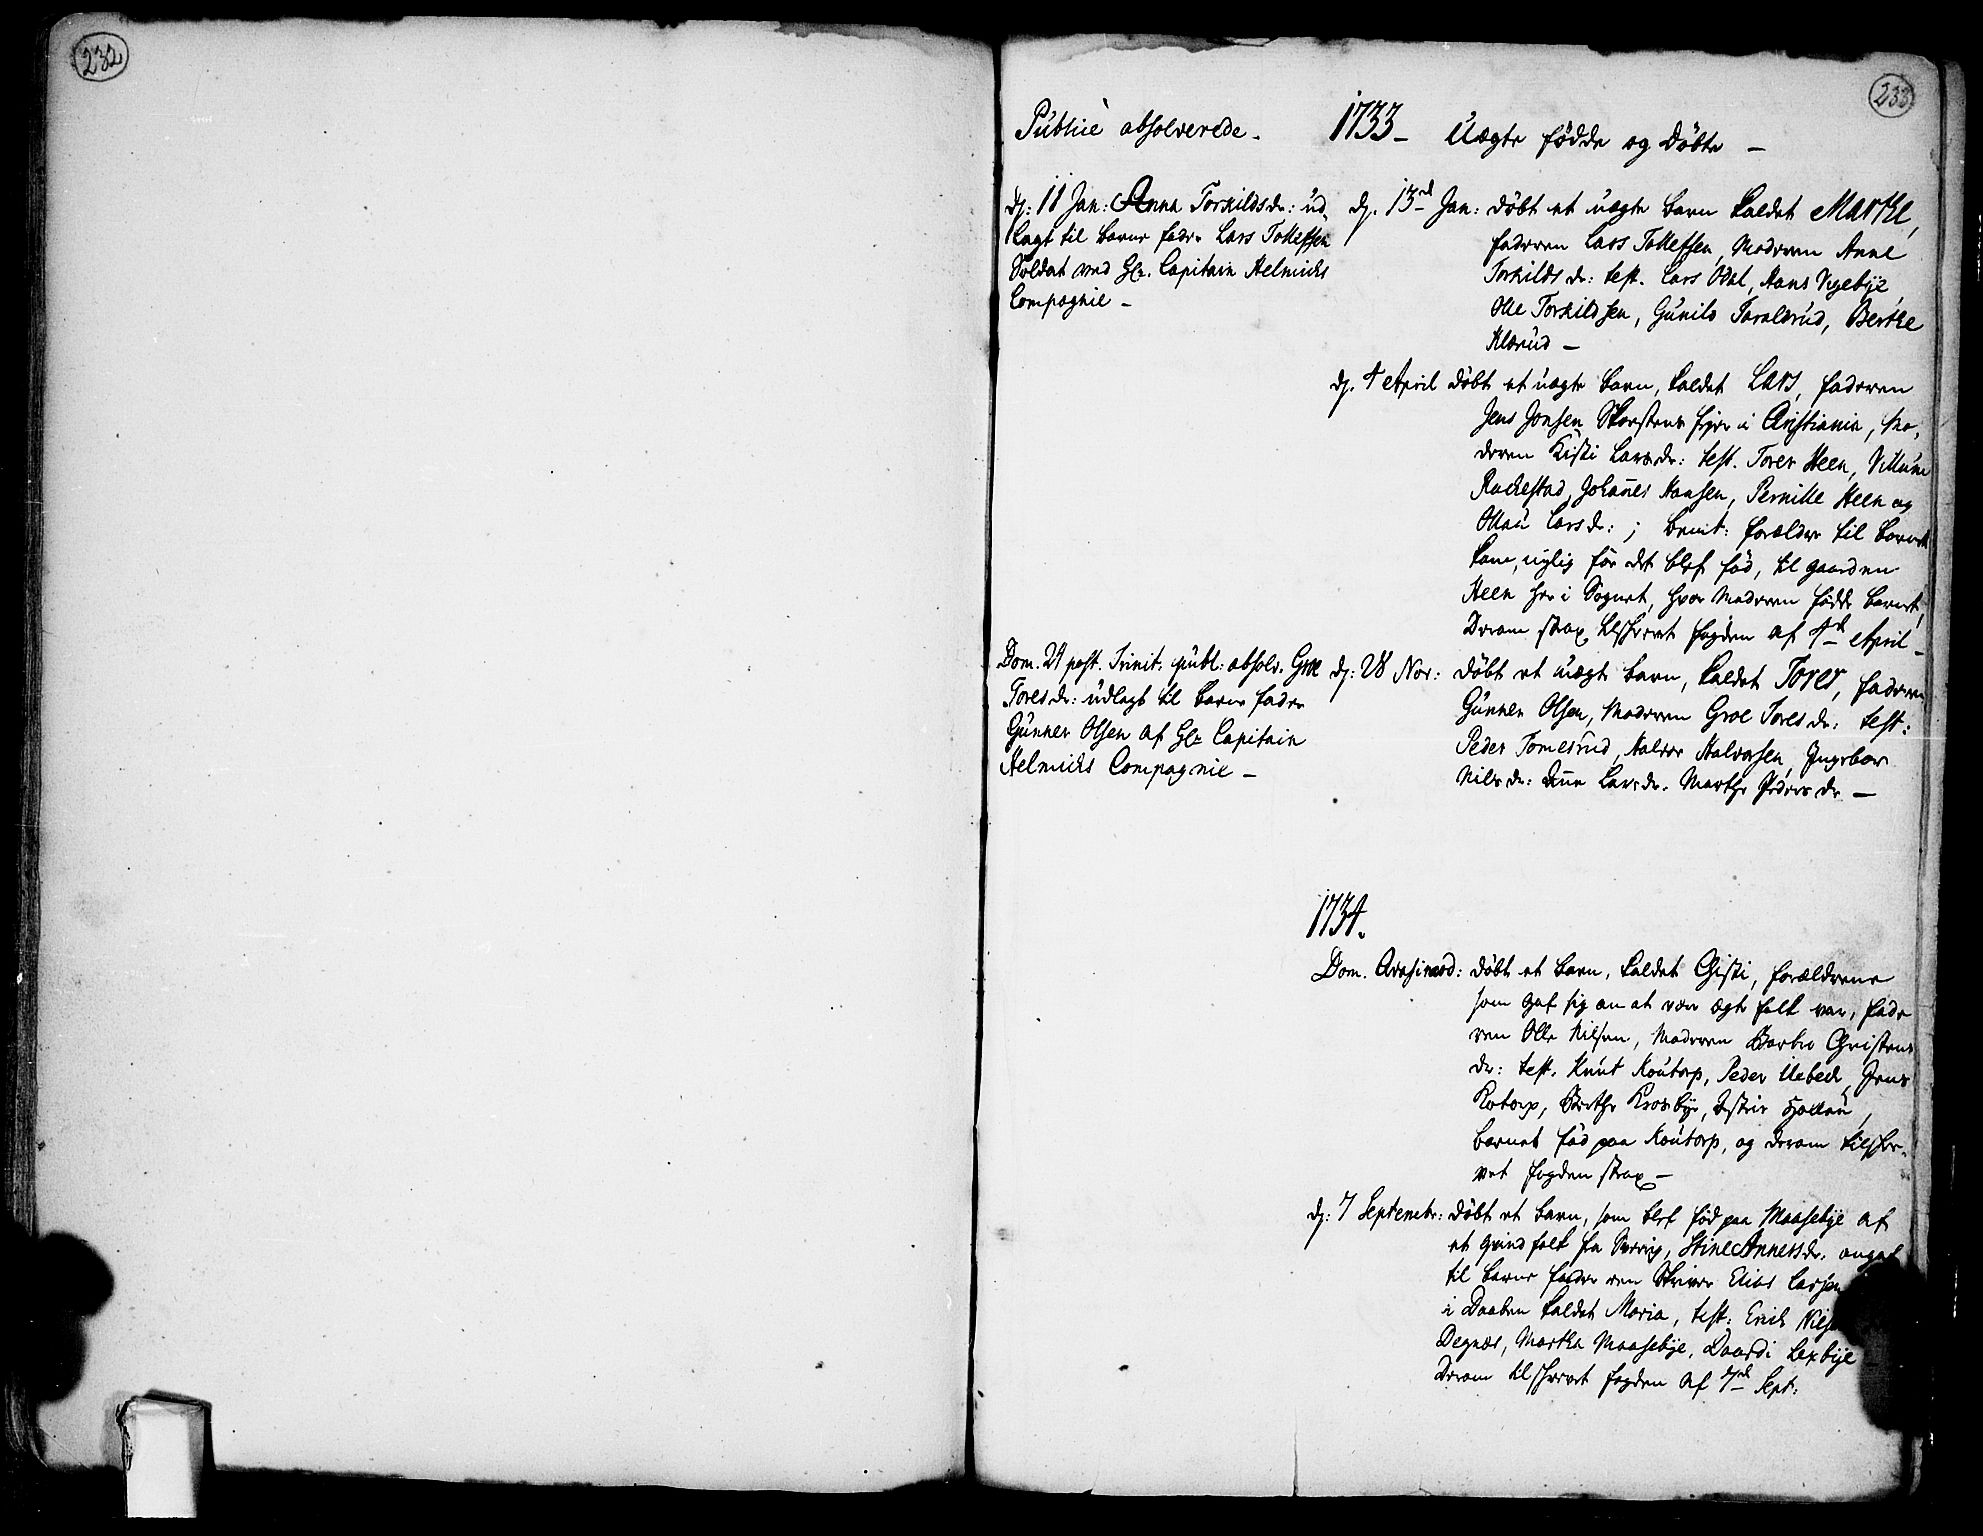 232
233
Publicè absolverede.
1733 - Uægte fødde og døbte -
dj: 11 Jan: Anna Torkildsdr: ud-
lagt til barne fader Lars Tollefsen
Soldat ved Hr. Capitain Helmichs
Compagnie -
dj. 13d Jan: døbt et uægte barn kaldet Marthe,
faderen Lars Tollefsen, Moderen Anne
Torkilds dr: test. Lars Odal, Hans Vigebye
Olle Torkildsen, Gunild Taraldrud, Berthe
Klærud -
dj. 4 April døbt et uægte barn, kaldet Lars, faderen
Jens Jonsen Skorstens fejer i Christiania, Mo-
deren Kisti Larsdr: test. Torer Heen, Villum
Rackestad, Johannes Hansen, Pernille Heen og
Ollau Larsdr: ; bemt: forældre til barnet
kom, nylig før det blef fød, til gaarden
Heen her i Sognet, hvor Moderen fødde barnet,
Derom strax tilskrevet fogden af 4d April -
Dom. 24 post. Trinit: publ: absolv. Groe
Toresdr: udlagt til barne fader
Gunner Olsen af Hr Capitain
Helmichs Compagnie -
dj: 28 Nov: døbt et uægte barn, kaldet Torer, faderen
Gunner Olsen, Moderen Groe Tores dr: test:
Peder Tomesrud, Halvor Halvorsen, Ingebor
Nils dr: Anne Larsdr. Marthe Peders dr -
1734.
Dom. Qvasimod: døbt et barn, kaldet Chisti, forældrene
som gaf sig an at være ægte folk var, fade
ren Olle Nilsen, Moderen Barbro Christens
dr: test. Knut Koutorp, Peder Uebeck, Jens
Kotorp, Berthe Krosbye, Astrir
barnet fød paa Koutorp, og derom tilskre-
vet fogden strax -
dj: 7 Septembr: døbt et barn, som blef fød paa Maasebye af
et qvindfolk fra Sverrig, Stine Annersdr. angaf
til barne fader een Skriver Elias Larsen
i Daaben kaldet Maria, test: Erich
Degnæs, Martha Maasebye, Daardi Lexbye
Derom tilskrevet fogden af 7d Sept: